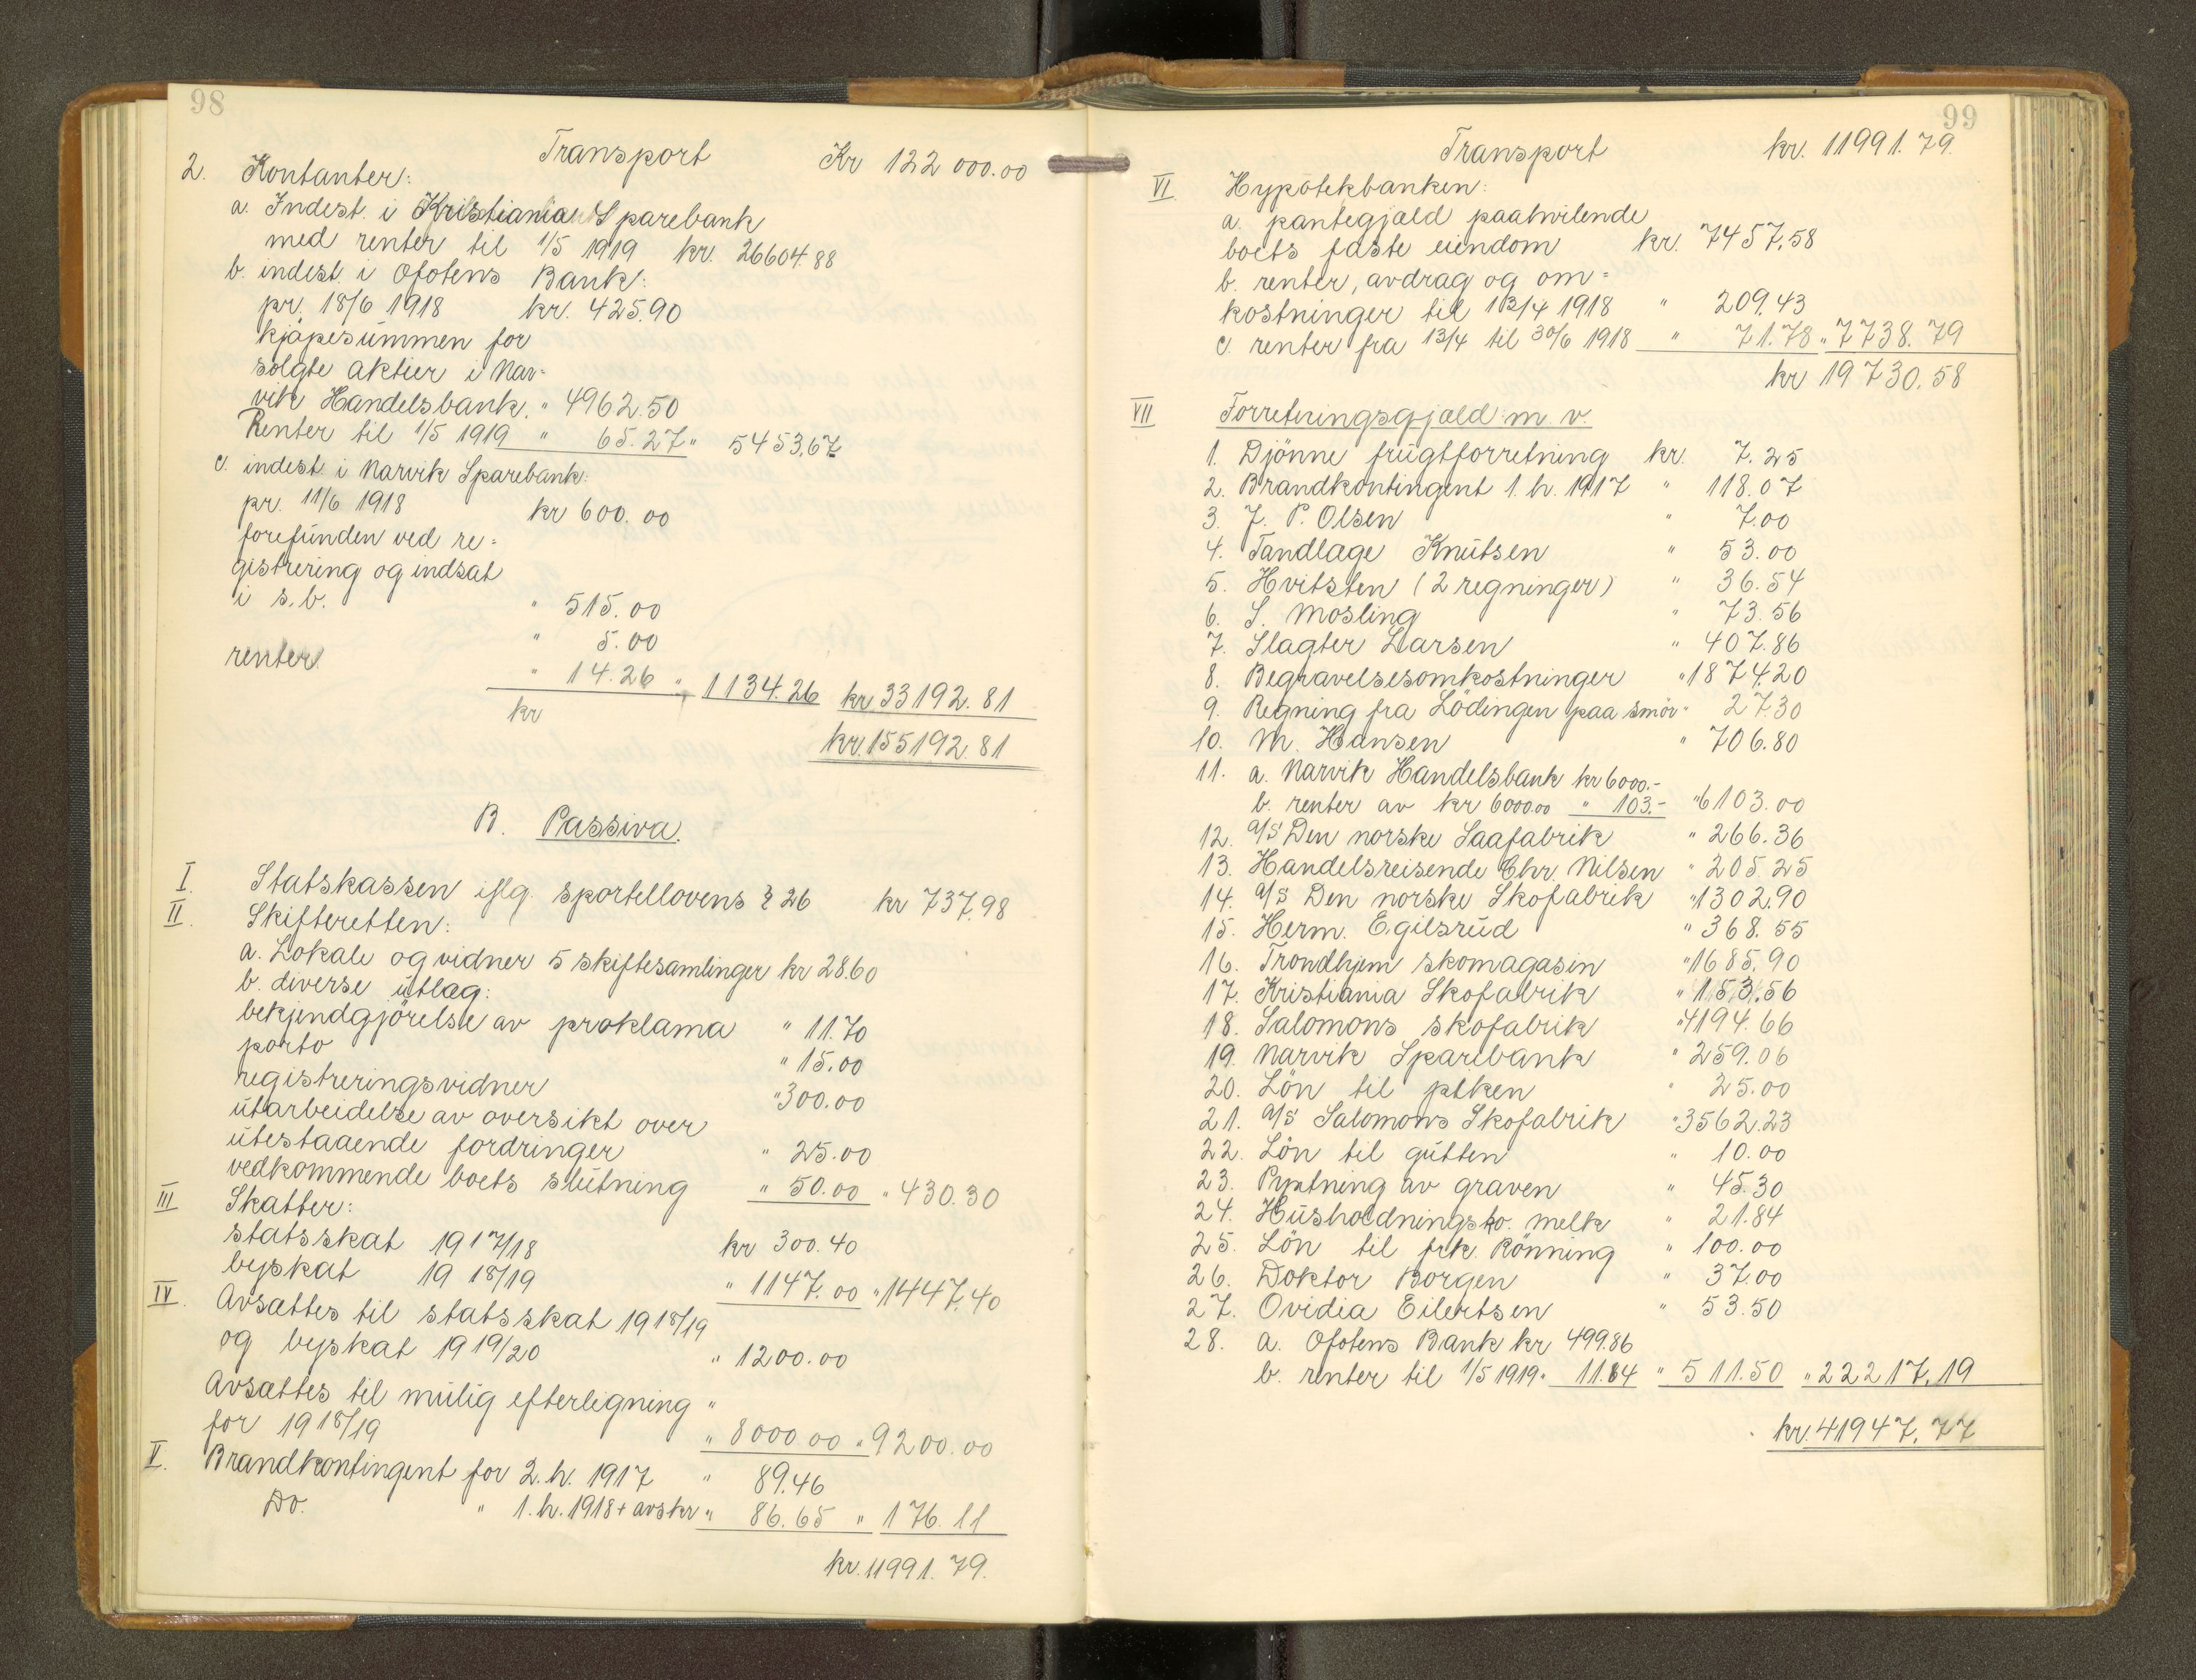 98
Transport Kr 122 000.00
2. Kontanter:
a. Indest. i Kristiania Sparebank
med renter til 1/5 1919 kr. 26604.88
b. indest. i Ofotens Bank:
pr. 18/6 1918 kr. 425.90
kjøpesummen for
solgte aktier i Nar=
vik Handelsbank. " 4962.50
Renter til 1/5 1919 " 65.27 " 5453,67
c. indest. i Narvik Sparebank:
pr. 11/6 1918 kr 600.00
forefunden ved re=
gistrering og indsat
i s.b. " 515.00
" 5.00
renter " 14.26 " 1134.26 kr 33192.81
kr
kr. 155192.81
B. Passiva.
I. Statskassen iflg. sportellovens § 26 kr 737.98
II. Skifteretten:
a. Lokale og vidner 5 skiftesamlinger kr 28.60
b. diverse utlæg:
bekjendgjörelse av proklama " 11.70
porto " 15.00
registreringsvidner " 300.00
utarbeidelse av oversikt over
utestaaende fordringer " 25.00
vedkommende boets slutning " 50.00 " 430.30
III Skatter:
statsskat 1917/18 kr 300.40
byskat 1918/19 " 1147.00 " 1447.40
IV. Avsættes til statsskat 1918/19
og byskat 1919/20 " 1200.00
Avsættes til mulig efterligning "
for 1918/19 " 8000.00 " 9200.00
V. Brandkontingent for 2. h. 1917 " 89.46
Do. " 1. h. 1918 + avskr " 86.65 " 176.11
kr. 11991.79.
99
Transport kr. 11991.79.
VI Hypotekbanken:
a. pantegjæld paahvilende
boets faste eiendom kr. 7457.58
b. renter, avdrag og om=
kostninger til 13/4 1918 " 209.43
c. renter fra 13/4 til 30/6 1918 " 71.78 " 7738.79
kr 19730.58
VII Forretningsgjæld m. v.
1. Djönne frugtforretning kr. 7.25
2. Brandkontingent 1. h. 1917 " 118.07
3. J. P. Olsen " 7.00
4. Tandlæge Knutsen " 53.00
5. Hvitsten (2 regninger) " 36.54
6. S. Mosling " 73.56
7. Slagter Larsen " 407.86
8. Begravelsesomkostninger " 1874.20
9. Regning fra Lödingen paa smör " 27.30
10. M. Hansen " 706.80
11. a. Narvik Handelsbank kr 6000.-
b. renter av kr 6000.00 " 103.- " 6103.00
12. A/S Den norske Saafabrik " 266.36
13. Handelsreisende Chr. Nilsen " 205.25
14. A/S Den norske Skofabrik " 1302.90
15. Herm. Egilsrud " 368.55
16. Trondhjem skomagasin " 1685.90
17. Kristiania Skofabrik " 153.56
18. Salomons skofabrik " 4194.66
19. Narvik Sparebank " 259.06
20. Lön til piken " 25.00
21. A/S Salomons Skofabrik " 3562.23
22. Lön til gutten " 10.00
23. Pyntning av graven " 45.30
24. Husholdningsko. melk " 21.84
25. Lön til frk. Rönning " 100.00
26. Doktor Borgen " 37.00
27. Ovidia Eilertsen " 53.50
28. a. Ofotens Bank kr 499.86
b. renter til 1/5 1919 " 11.64 " 511.50 " 22217.19
kr. 41947.77